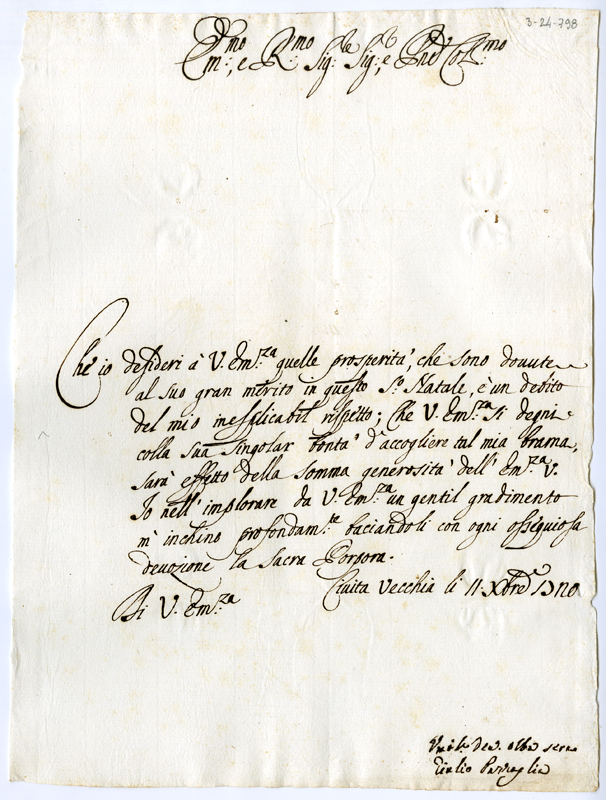 3-24-798
Em:mo, e R:mo Sig:re Sig:r, e Pne Coll:mo
Che io desideri à V. Em:za quelle prosperità, che sono douute
al suo gran merito in questo S:to Natale, è un debito
del mio inesplicabil rispetto; Che V. Em:za si degni
colla sua singolar bontà d'accogliere tal mia brama,
sarà effetto della somma generosità dell' Em:za V.
Io nell' implorare da V. Em:za un gentil gradimento
m' inchino profondam:te baciandoli con ogni ossequiosa
devozione la Sacra Porpora.
Ciuita Vecchia li 11 Xbre
Di V. Em:za
Vmil:o deu. obb:o seru
Giulio